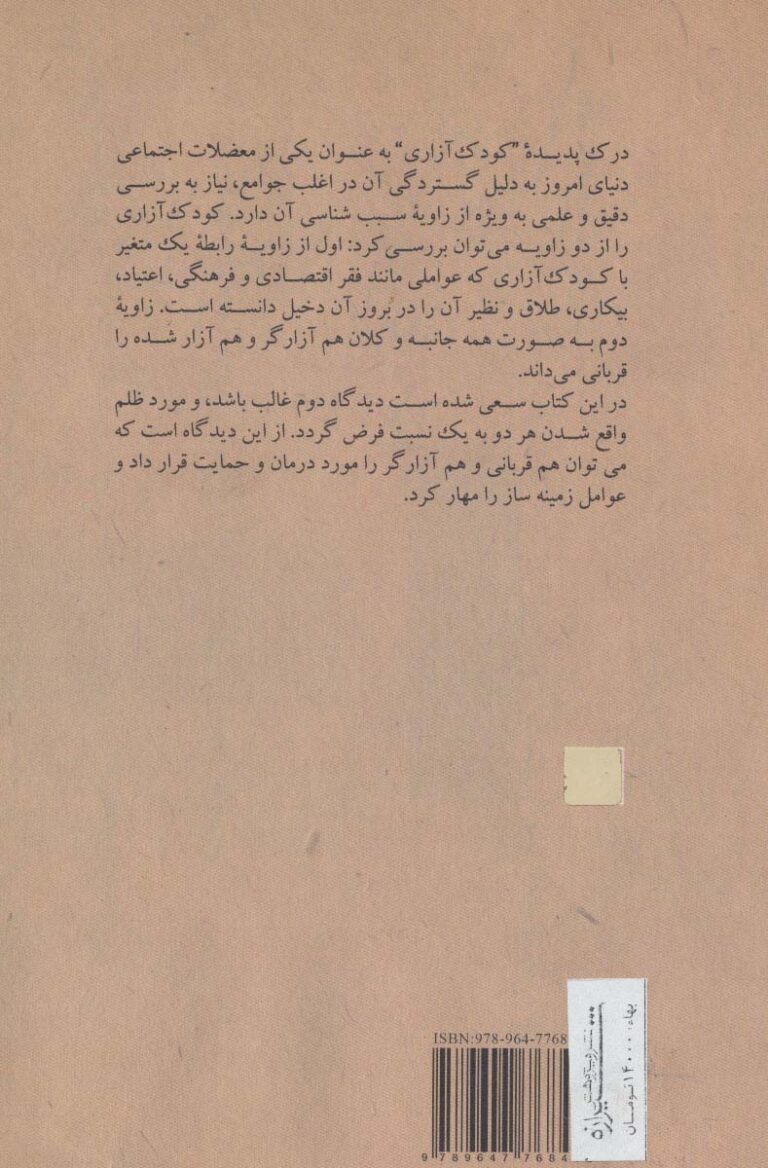 درک پدیـــدهٔ "کودک‌آزاری" به عنـــوان یکی از معضلات اجتماعی
دنیای امروز به دلیل گســـتردگی آن در اغلب جوامع، نیاز به بررســـی
دقیق و علمی به ویژه از زاویهٔ ســـبب شناسی آن دارد. کودک‌آزاری
را از دو زاویـــه می‌توان بررســـی‌کرد: اول از زاویـــهٔ رابطهٔ یک متغیر
با کـــودک‌آزاری که عواملی مانند فقر اقتصـــادی و فرهنگی، اعتیاد،
بیکاری، طلاق و نظیر آن را در بروز آن دخیل دانســـته اســـت. زاویهٔ
دوم بـــه صـــورت همه جانبـــه و کلان هم آزارگر و هم آزار شـــده را
قربانی می‌داند.
در این کتاب ســـعی شده اســـت دیدگاه دوم غالب باشد، و مورد ظلم
واقع شـــدن هر دو به یک نسبت فرض گردد. از این دیدگاه است که
می توان هم قربانی و هم آزارگر را مورد درمان و حمایت قرار داد و
عوامل زمینه ساز را مهار کرد.
ISBN:978-964-7768
9 789647 77684
شیرازه
بهاء: ۱۴۰۰۰ تومـــان